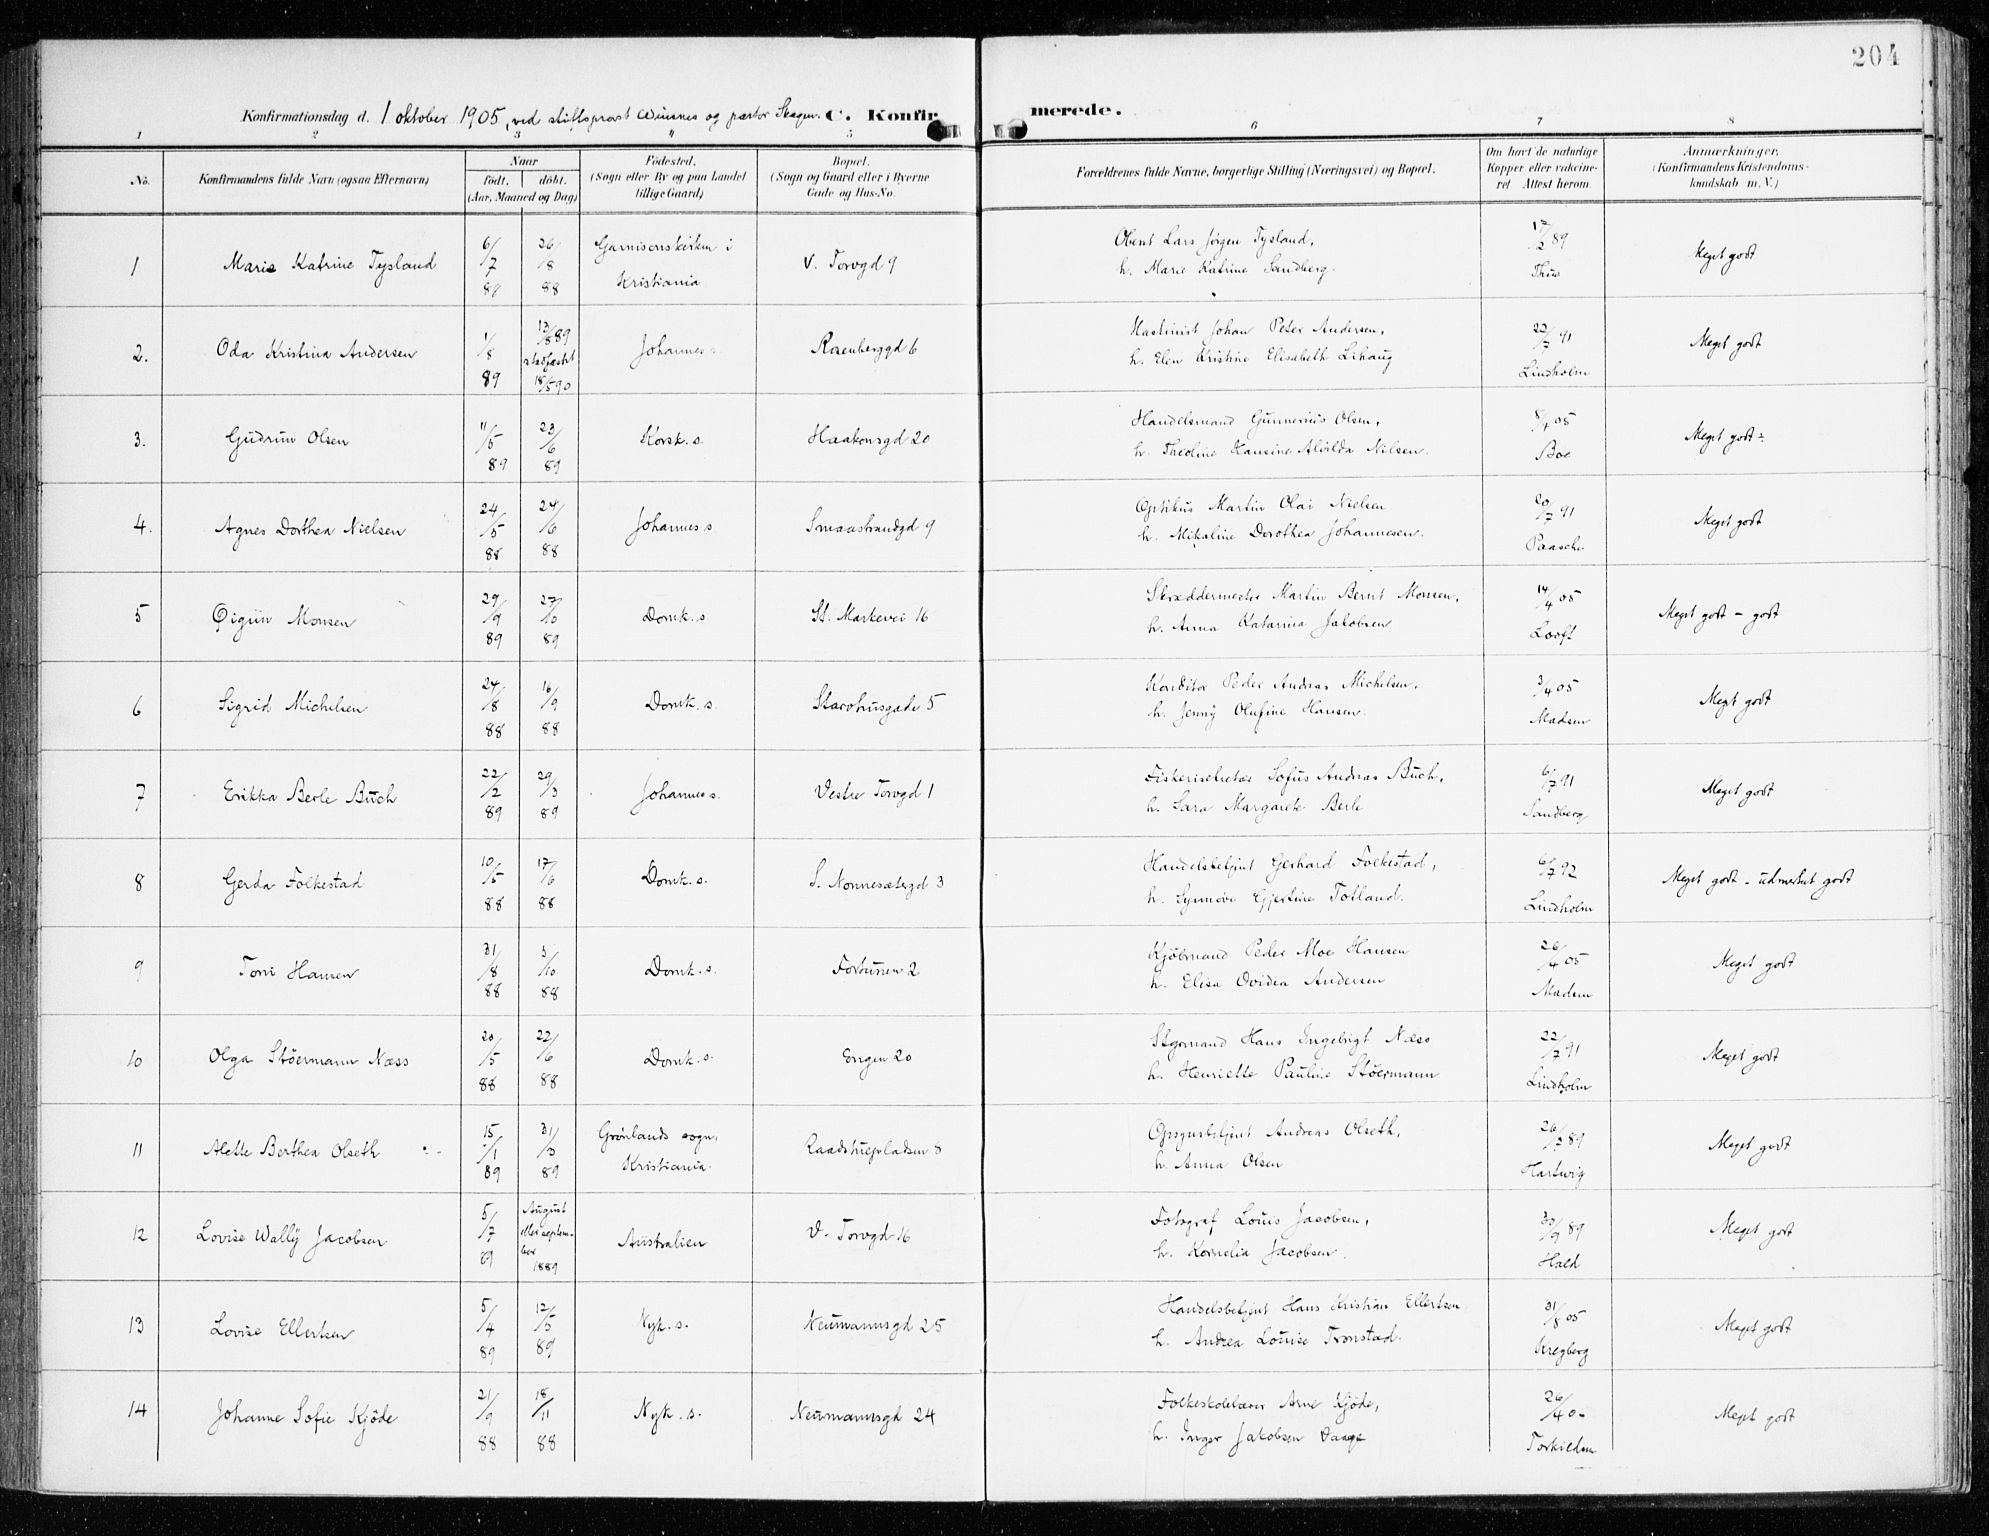 204
Konfirmationsdag d. 1 oktober 1905, ved stiftsprovst og pastor C. Konfirmerede.
1 2 3 4 5 6 7 8
No. Konfirmandens fulde Navn (ogsaa Efternavn) Naar födt. döbt. (Aar, Maaned og Dag) Födested. (Sogn eller By og paa Landet tillige Gaard) Bopæl. (Sogn og Gaard eller i Byerne Gade og Hus-No. Forældrenes fulde Navne, borgerlige Stilling (Næringsvei) og Bopæl. Om havt de naturlige Kopper eller vakcineret. Attest herom. Anmærkninger. (Konfirmandens Kristendomskundskab m. V.)
1 Marie Katrine Tysland 6/7 88 26/8 88 Garnisonskirken i Kristiania V. Torvgd 9
Lars Jörgen Tysland,
h. Marie Katrine Sandberg. 89 Meget godt
2. Oda Kristina Andersen 1/8 89 13/8 89 stadfæstet 18/5 90 Johannes s. Rosenberggd 6
Maskinist Johan Peter Andersen,
h. Elen Kristine Elisabeth Lihaug 22/7 91 Lindholm Meget godt
3. Gudrun Olsen 11/5 89 23/6 89 Korsk. s. Haakonsgd 20
Handelsmand Gunnerius Olsen,
h. Theoline Hansine Alvilda Nilsen. 05 Boe Meget godt ÷
4. Agnes Dorthea Nielsen 24/5 88 24/6 88 Johannes s Smaastrandgd 9
Optikus Martin Olai Nielsen
h. Mikaline Dorothea Johannesen. 20/7 91 Paasche Meget godt
5 Sigün Monsen 29/9 89 27/10 89 Domk. s St. Markevei 16
Skræddermester Martin Bernt Monsen,
h. Anna Katarina Jakobsen 14/4 05 Looft Meget godt – godt
6 Sigrid Michelsen 24/8 88 16/9 88 Domk. s. Starvhusgade 5
Konditor Peder Andreas Michelsen.
h. Jenny Olufine Hansen. 3/4 05 Madsen Meget godt
7 Erikka Berle Buch 22/2 89 29/3 89 Johannes s. Vestre Torvgd 1
Fiskerisekretær Sofus Andreas Buch,
h. Sara Margarete Berle 6/7 91 Sandberg Meget godt
8 Gerda Folkestad 10/5 88 17/6 88 Domk. s. S. Nonnesætergd 3
Handelsbetjent Gerhard Folkestad,
h. Synnöve Gjertine Totland. 6/7 92 Lindholm Meget godt - udmerket godt
9 Toni Hansen 31/8 88 /10 88 Domk. s. Fortunen 2
Kjöbmand Peder Moe Hansen
h. Elisa Ovidea Andersen 26/4 05 Madsen Meget godt
10 Olga Stöermann Næss 20/5 88 22/6 88 Domk. s. Engen 20
Styrmand Hans Ingebrigt Næss
h. Henriette Pauline Stöermann 22/7 91 Lindholm Meget godt
11 Alette Berthea Olseth 15/1 89 31/3 89 Grönlands sogn, Kristiania. Raadstuepladsen 8
Opsynsbetjent Andreas Olseth,
h. Anna Olsen 89 Hartwig Meget godt
12 Lovise Wally Jacobsen 5/7 89 August eller september 1889 Australien V. Torvgd 16
Fotograf Louis Jacobsen,
h. Kornelia Jacobsen. 30/9 89 Hald Meget godt
13 Lovise Ellertsen 5/4 89 12/5 89 Nyk. s. Neumannsgd 25
Handelsbetjent Hans Kristian Ellertsen
h. Andrea Louise Tronstad. 31/8 05 Kregberg Meget godt
14 Johanne Sofie Kjöde 21/9 88 18/11 88 Nyk. s. Neumannsgd 24
Folkeskolelærer Arne Kjöde,
h. Inger Jakobsen Daage 26/4 Torkildsen Meget godt